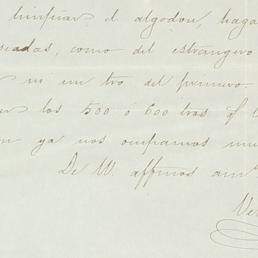 limpiar el algodon, haga
como del estrangero
ni un tro del primero.
los 500 ó 600 tros qe
ya nos ocupamos
De V. affmos am